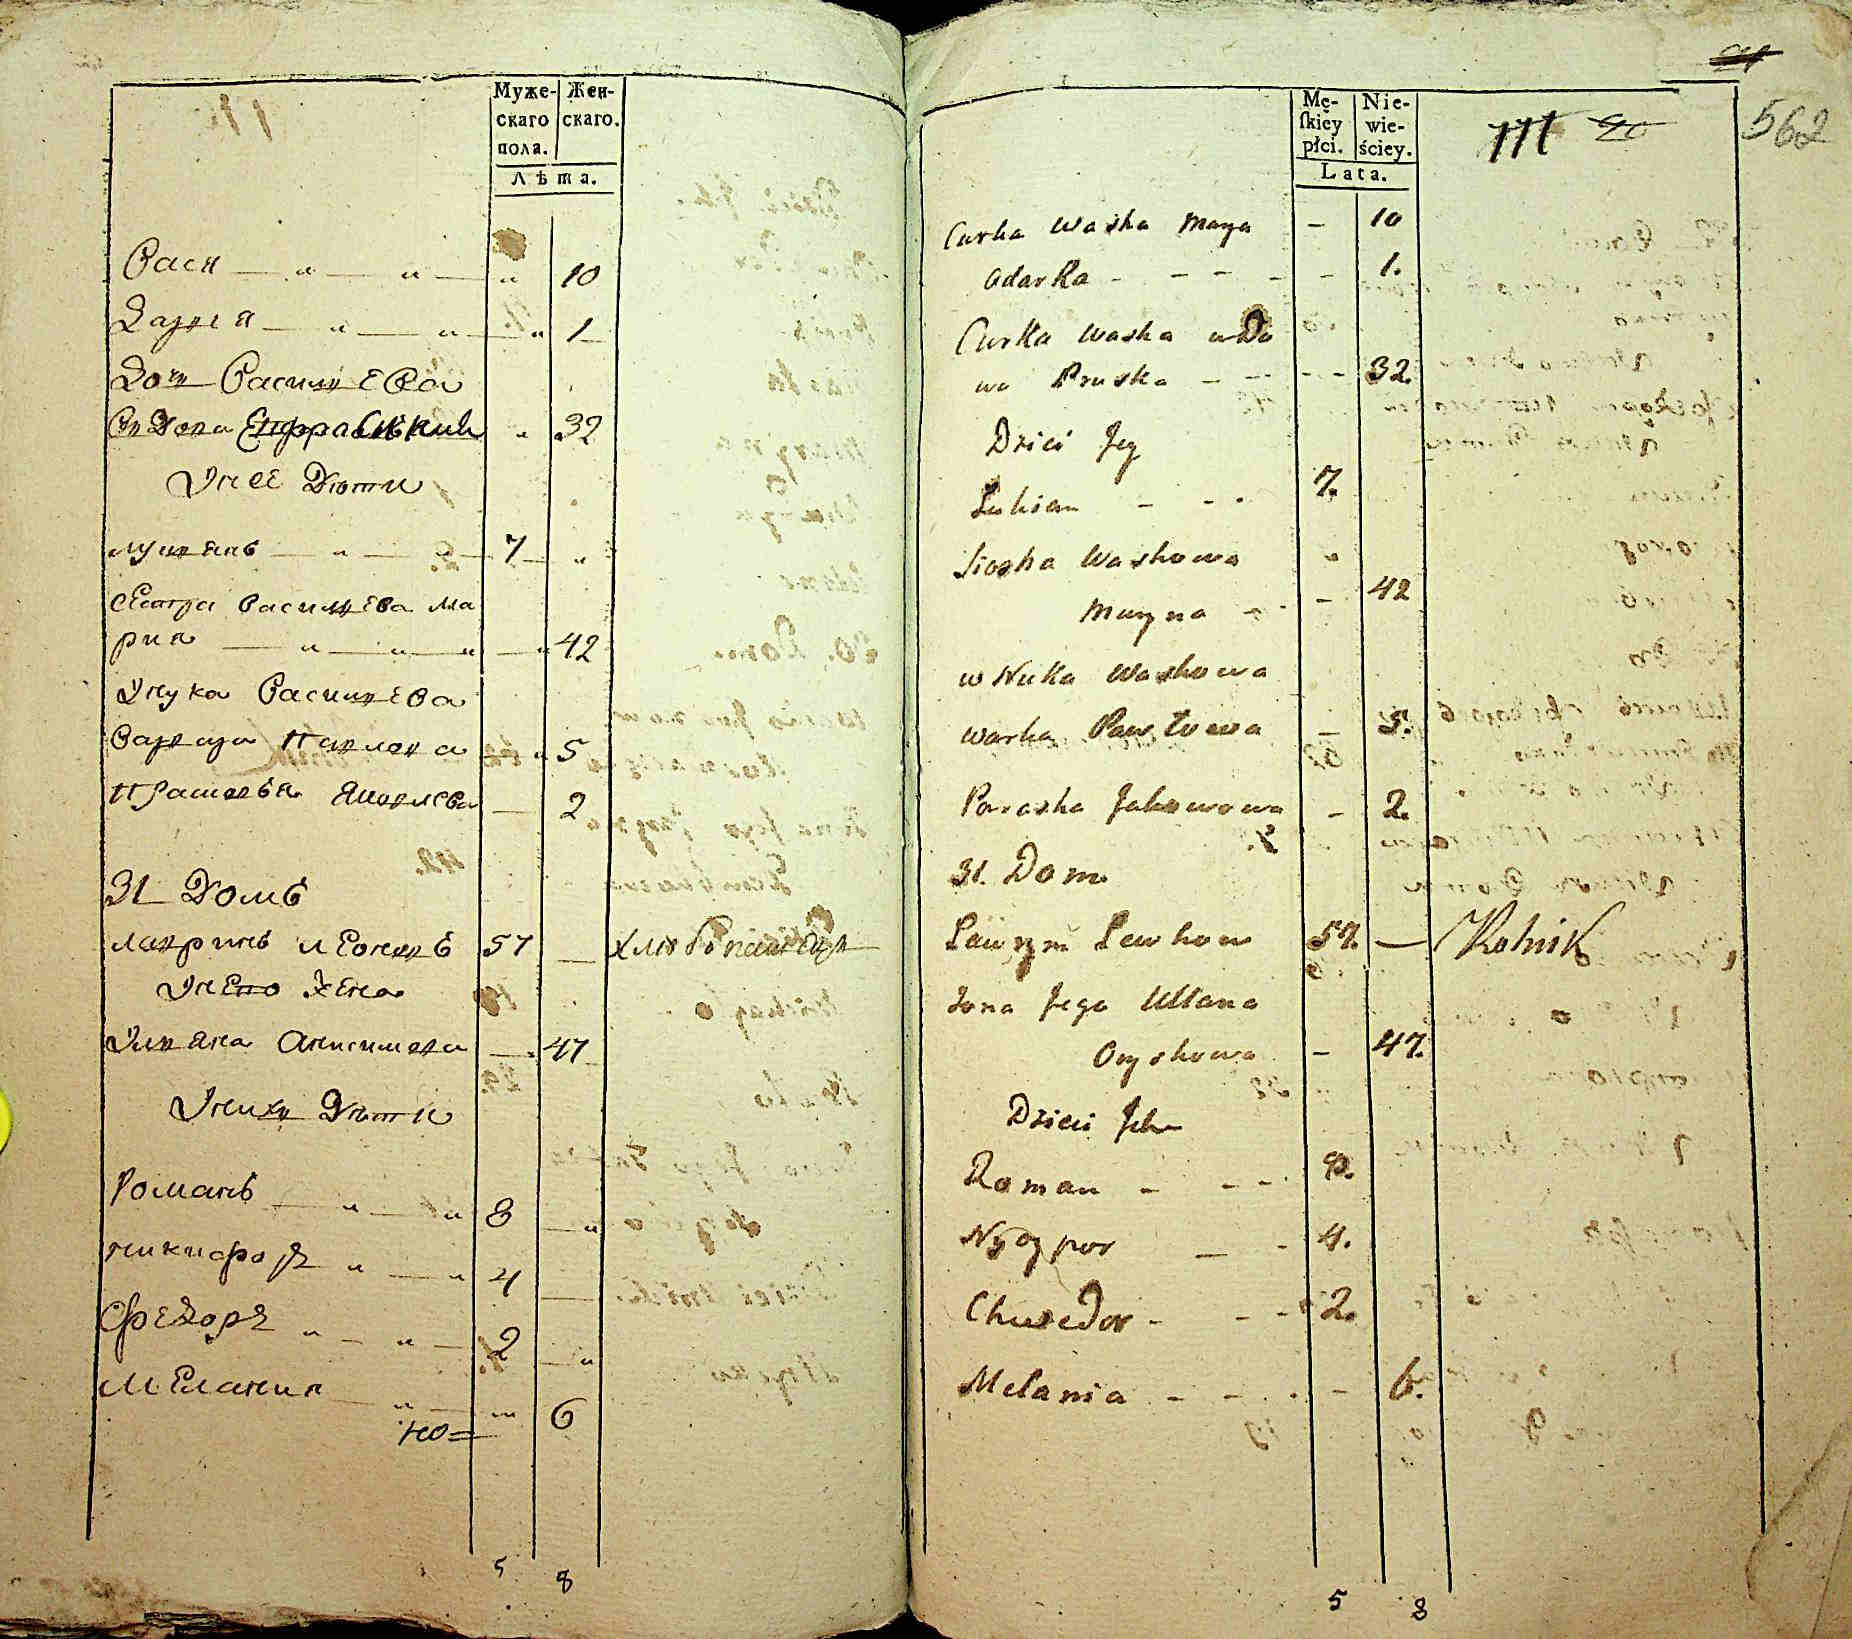 Муже-
скаго
пола.
Жен-
скаго.
Лѣта.
Вася — " — " — " 10
Дарія — " — " — " 1
Дочь Василѣва
вдова " 32
У нее Дѣти
лукьянъ — " — " — 7 — "
сестра василѣва ма
рия — " — " — " — " 42
Внука Василѣва
варвара павлова — " 5
прасковья Яковлева — 2
31 Домъ
лавринъ леоновъ 57 — хлѣбопашецъ
У него Жена
Ульяна Анисимова — 47
У нихъ Дѣти
Романъ — " — " 8 — "
никифоръ " — " 4 —
Фѣдоръ " — " — 2 — "
Мелания — " — " 6
но=
5 8
Mę-
ſkiey
płci.
Nie-
wie-
ściey.
Lata.
111
562
Curka Waśka Marya — 10
Odarka - - - - - 1.
Curka Waska wDo
wa Pruska - - - - 32.
Dzieci Jey
Lukian - - - 7.
Siostra Waskowa "
Maryna - - - 42
wNuka Waskowa
Warka Pawłowa — 5.
Paraska Jakowowa - 2.
31. Dom
Ławryn Lewkow 57. — Rolnik
Żona Jego Ullana
Onyskowa — 47.
Dzieci Ich
Roman - - - 8.
Nyczypor — - 4.
Chwedor - - - 2.
Melania - - - - 6.
5 8